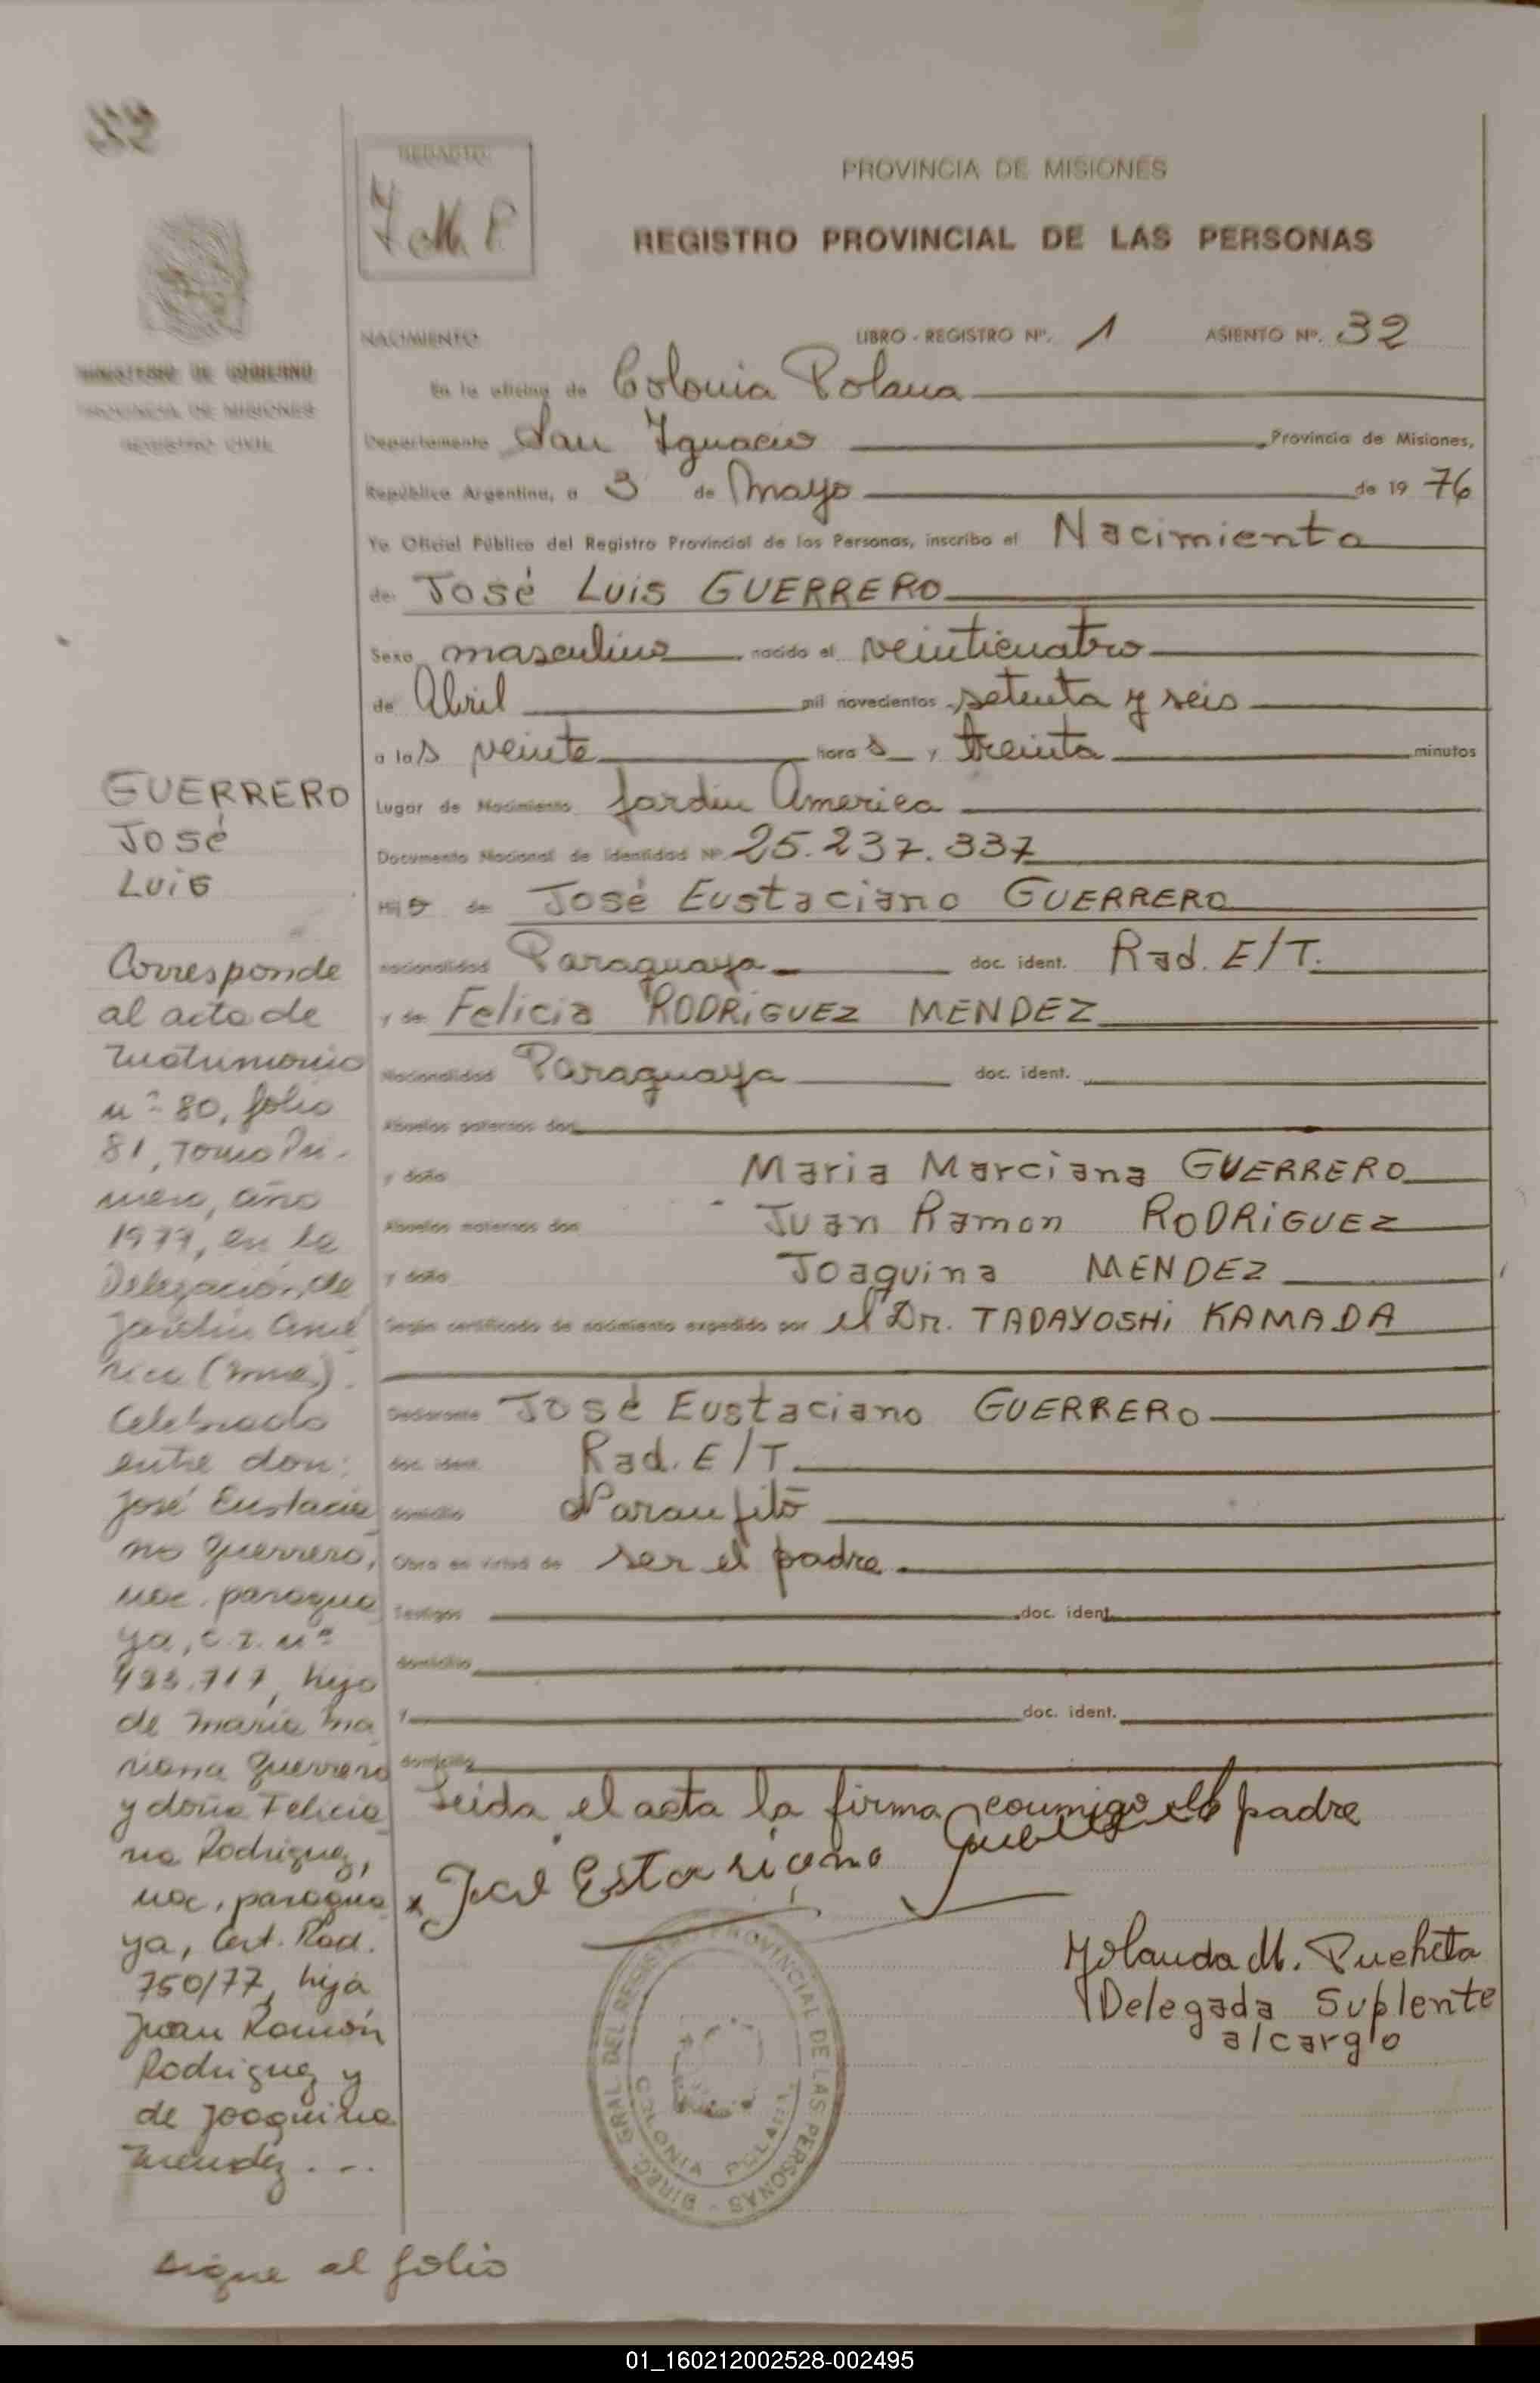 32
REDACTO:
Y.M.P.
PROVINCIA DE MISIONES
REGISTRO PROVINCIAL DE LAS PERSONAS
MINISTERIO DE GOBIERNO
PROVINCIA DE MISIONES
REGISTRO CIVIL
NACIMIENTO LIBRO - REGISTRO Nº. 1 ASIENTO Nº. 32
En la oficina de Colonia Polana
Departamento San Ygnacio Provincia de Misiones,
República Argentina, a 3 de Mayo de 19 76
Yo Oficial Público del Registro Provincial de las Personas, inscribo el Nacimiento
de José Luis GUERRERO
Sexo masculino nacido el veinticuatro
de Abril mil novecientos setenta y seis
a las veinte horas y treinta minutos
Lugar de Nacimiento Jardin America
Documento Nacional de Identidad Nº 25.237.337
Hijo de José Eustaciano GUERRERO
nacionalidad Paraguaya doc. ident. Rad. E/T.
y de Felicia RODRIGUEZ MENDEZ
Nacionalidad Paraguaya doc. ident.
Abuelos paternos don
y doña Maria Marciana GUERRERO
Abuelos maternos don Juan Ramon RODRIGUEZ
y doña Joaquina MENDEZ
Según certificado de nacimiento expedido por el Dr. TADAYOSHI KAMADA
Declarante José Eustaciano GUERRERO
doc. ident. Rad. E/T.
domicilio Ñaranfitõ
Obra en virtud de ser el padre
Testigos doc. ident.
domicilio
y doc. ident.
domicilio
Leida el acta la firma conmigo el padre
José Estaciano
Yolanda M. Pucheta
Delegada Suplente
a/cargo
DIREC. GRAL DEL REGISTRO PROVINCIAL DE LAS PERSONAS
COLONIA POLANA
GUERRERO
José
Luis
Corresponde
al acta de
Matrimonio
nº 80, folio
81, Tomo Pri-
mero, año
1977, en la
Delegación de
Jardín Amé
rica (Mnes).
Celebrado
entre don:
José Eustacia
no Guerrero,
nac. paragua
ya, C.I. nº
423.717, hijo
de María Ma
riana Guerrero
y doña Felicia
na Rodriguez,
nac. paragua
ya, Cert. Rad.
750/77, hija
Juan Ramón
Rodriguez y
de Joaquina
Mendez . - -
sigue al folio
01_160212002528-002495